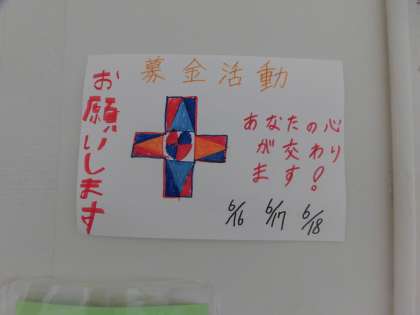 募金活動
お願いします
あなたの心
が交わり
ます!
6/16 6/17 6/18